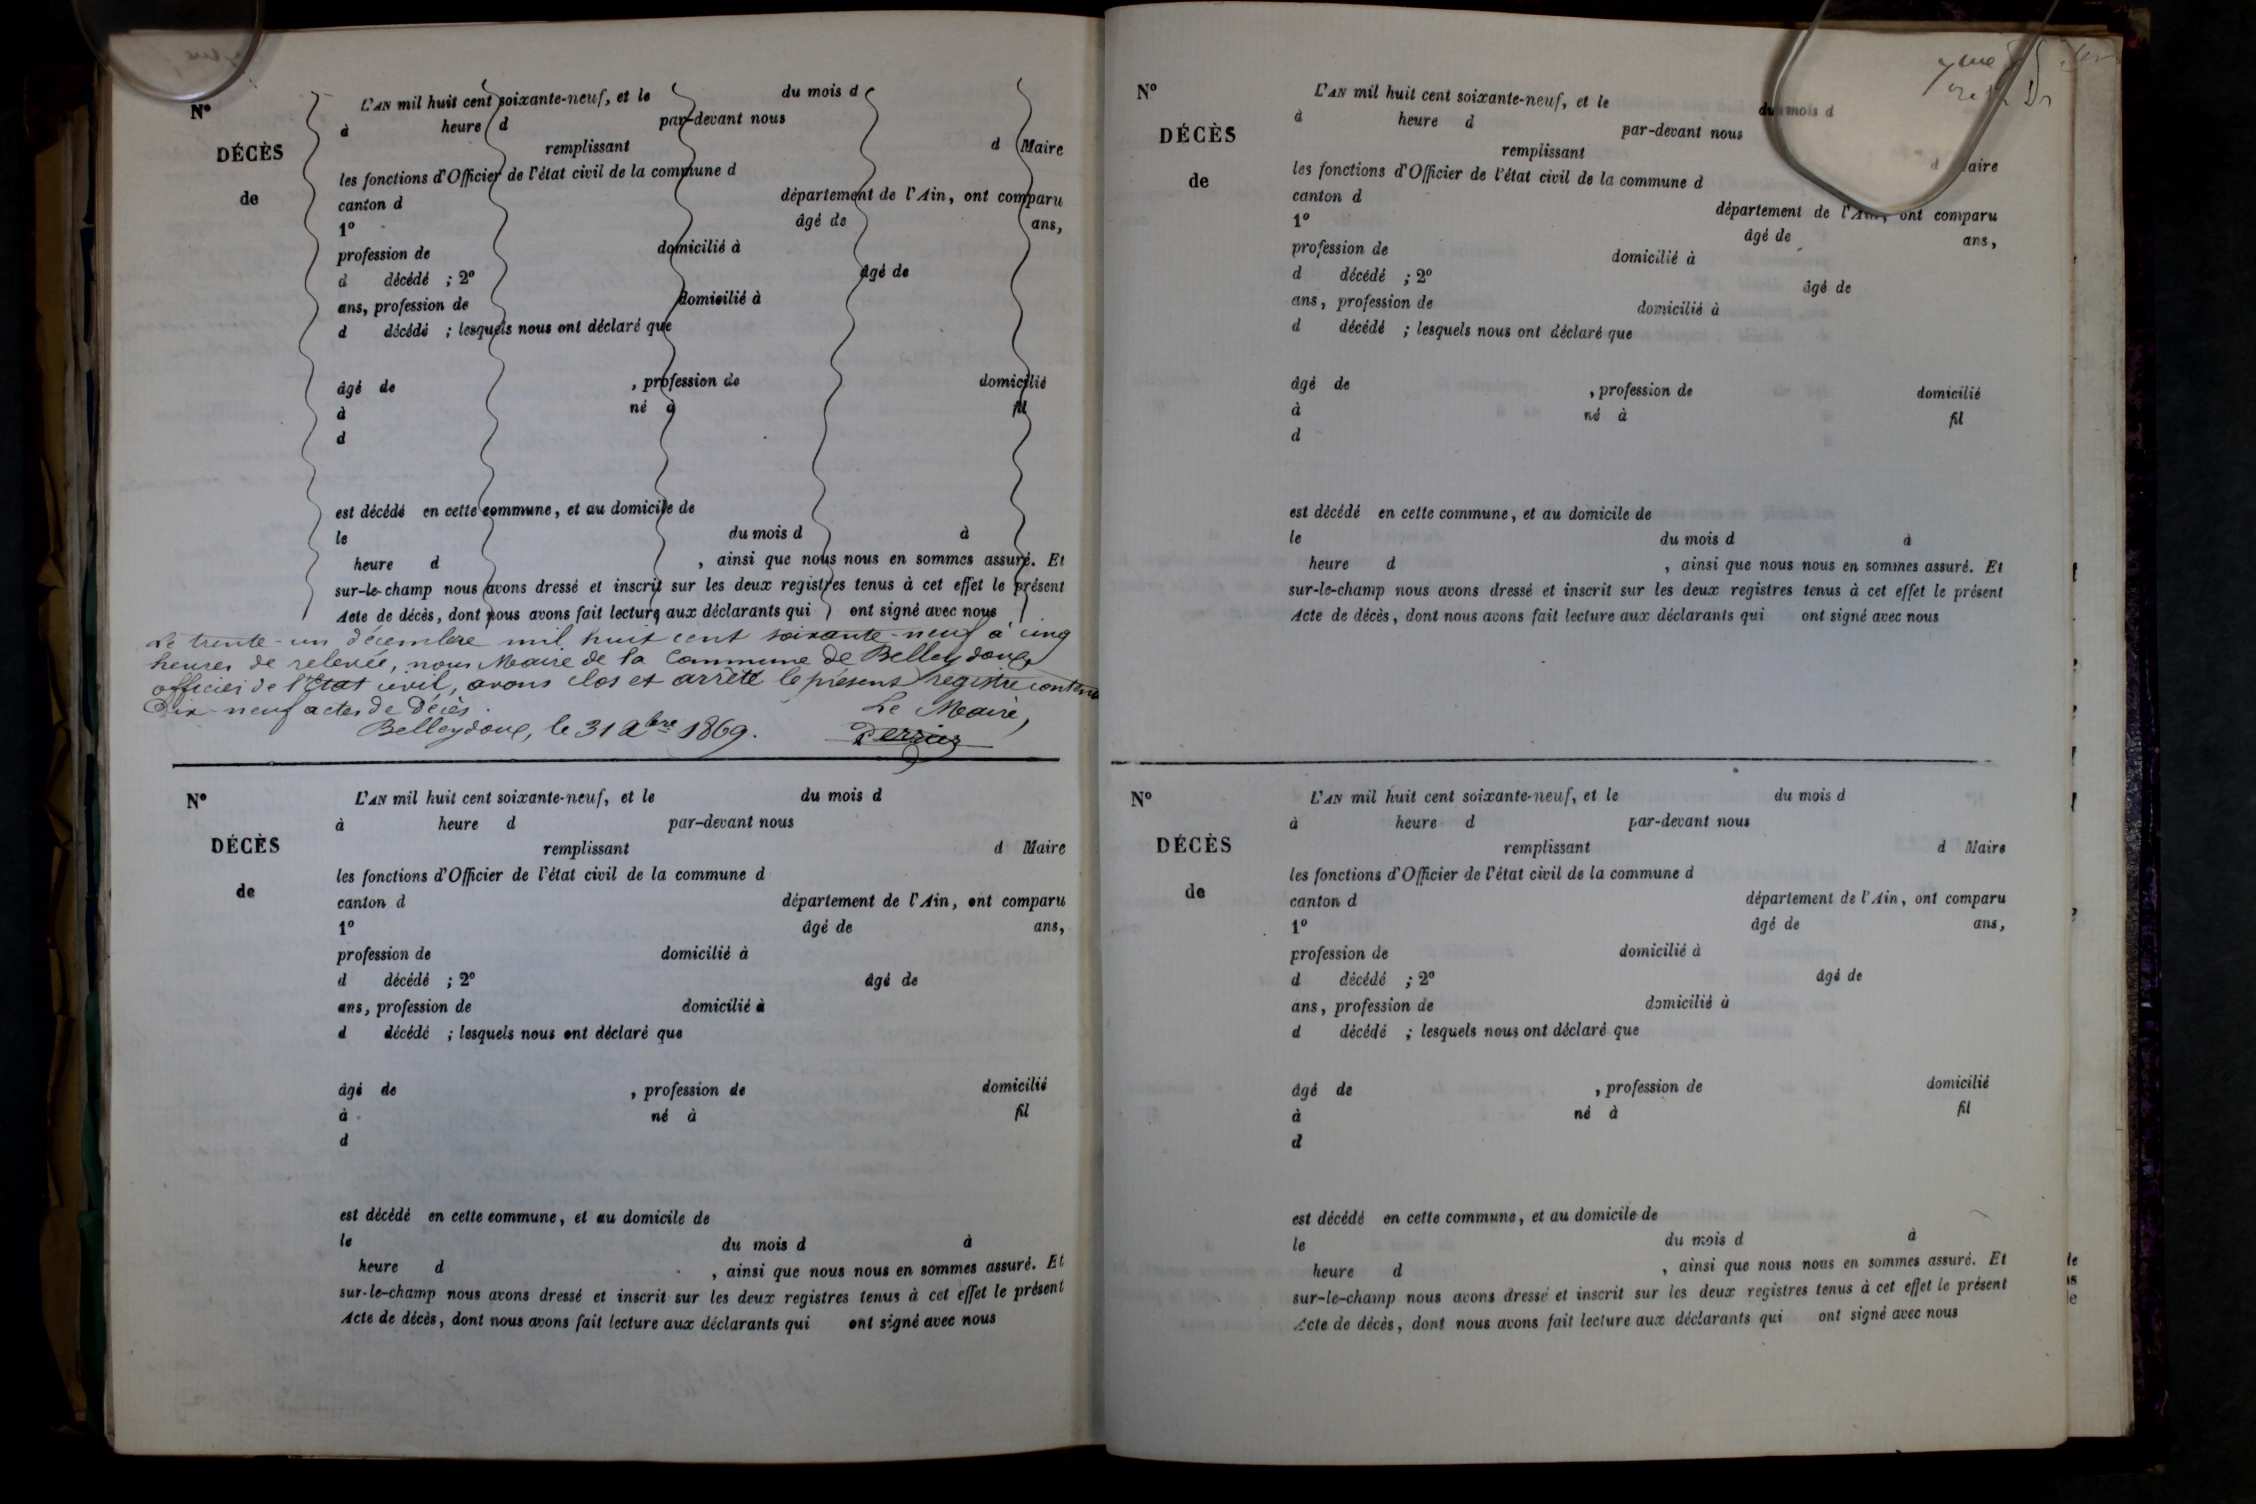 N°
DÉCÈS
de
L'AN mil huit cent soixante-neuf, et le du mois d
à heure d par-devant nous
remplissant d Maire
les fonctions d'Officier de l'état civil de la commune d
canton d département de l'Ain, ont comparu
1° âgé de ans,
profession de domicilié à
d décédé ; 2° âgé de
ans, profession de domicilié à
d décédé ; lesquels nous ont déclaré que
âgé de , profession de domicilié
à né à fil
d
est décédé en cette commune, et au domicile de
le du mois d à
heure d , ainsi que nous nous en sommes assuré. Et
sur-le-champ nous avons dressé et inscrit sur les deux registres tenus à cet effet le présent
Acte de décès, dont nous avons fait lecture aux déclarants qui ont signé avec nous
Le trente-un décembre mil huit cent soixante-neuf à cinq
heures de relevée, nous Maire de la Commune de Belleydoux
officier de l'Etat civil, avons clos et arrêté le présent registre contenant
Dix-neuf actes de Décès.
Le Maire,
Belleydoux, le 31 Xbre 1869.
N°
DÉCÈS
de
L'AN mil huit cent soixante-neuf, et le du mois d
à heure d par-devant nous
remplissant d Maire
les fonctions d'Officier de l'état civil de la commune d
canton d département de l'Ain, ont comparu
1° âgé de ans,
profession de domicilié à
d décédé ; 2° âgé de
ans, profession de domicilié à
d décédé ; lesquels nous ont déclaré que
âgé de , profession de domicilié
à né à fil
d
est décédé en cette commune, et au domicile de
le du mois d à
heure d , ainsi que nous nous en sommes assuré. Et
sur-le-champ nous avons dressé et inscrit sur les deux registres tenus à cet effet le présent
Acte de décès, dont nous avons fait lecture aux déclarants qui ont signé avec nous
N°
DÉCÈS
de
L'AN mil huit cent soixante-neuf, et le du mois d
à heure d par-devant nous
remplissant d Maire
les fonctions d'Officier de l'état civil de la commune d
canton d département de l'Ain, ont comparu
1° âgé de ans,
profession de domicilié à
d décédé ; 2° âgé de
ans, profession de domicilié à
d décédé ; lesquels nous ont déclaré que
âgé de , profession de domicilié
à né à fil
d
est décédé en cette commune, et au domicile de
le du mois d à
heure d , ainsi que nous nous en sommes assuré. Et
sur-le-champ nous avons dressé et inscrit sur les deux registres tenus à cet effet le présent
Acte de décès, dont nous avons fait lecture aux déclarants qui ont signé avec nous
N°
DÉCÈS
de
L'AN mil huit cent soixante-neuf, et le du mois d
à heure d par-devant nous
remplissant d Maire
les fonctions d'Officier de l'état civil de la commune d
canton d département de l'Ain, ont comparu
1° âgé de ans,
profession de domicilié à
d décédé ; 2° âgé de
ans, profession de domicilié à
d décédé ; lesquels nous ont déclaré que
âgé de , profession de domicilié
à né à fil
d
est décédé en cette commune, et au domicile de
le du mois d à
heure d , ainsi que nous nous en sommes assuré. Et
sur-le-champ nous avons dressé et inscrit sur les deux registres tenus à cet effet le présent
Acte de décès, dont nous avons fait lecture aux déclarants qui ont signé avec nous